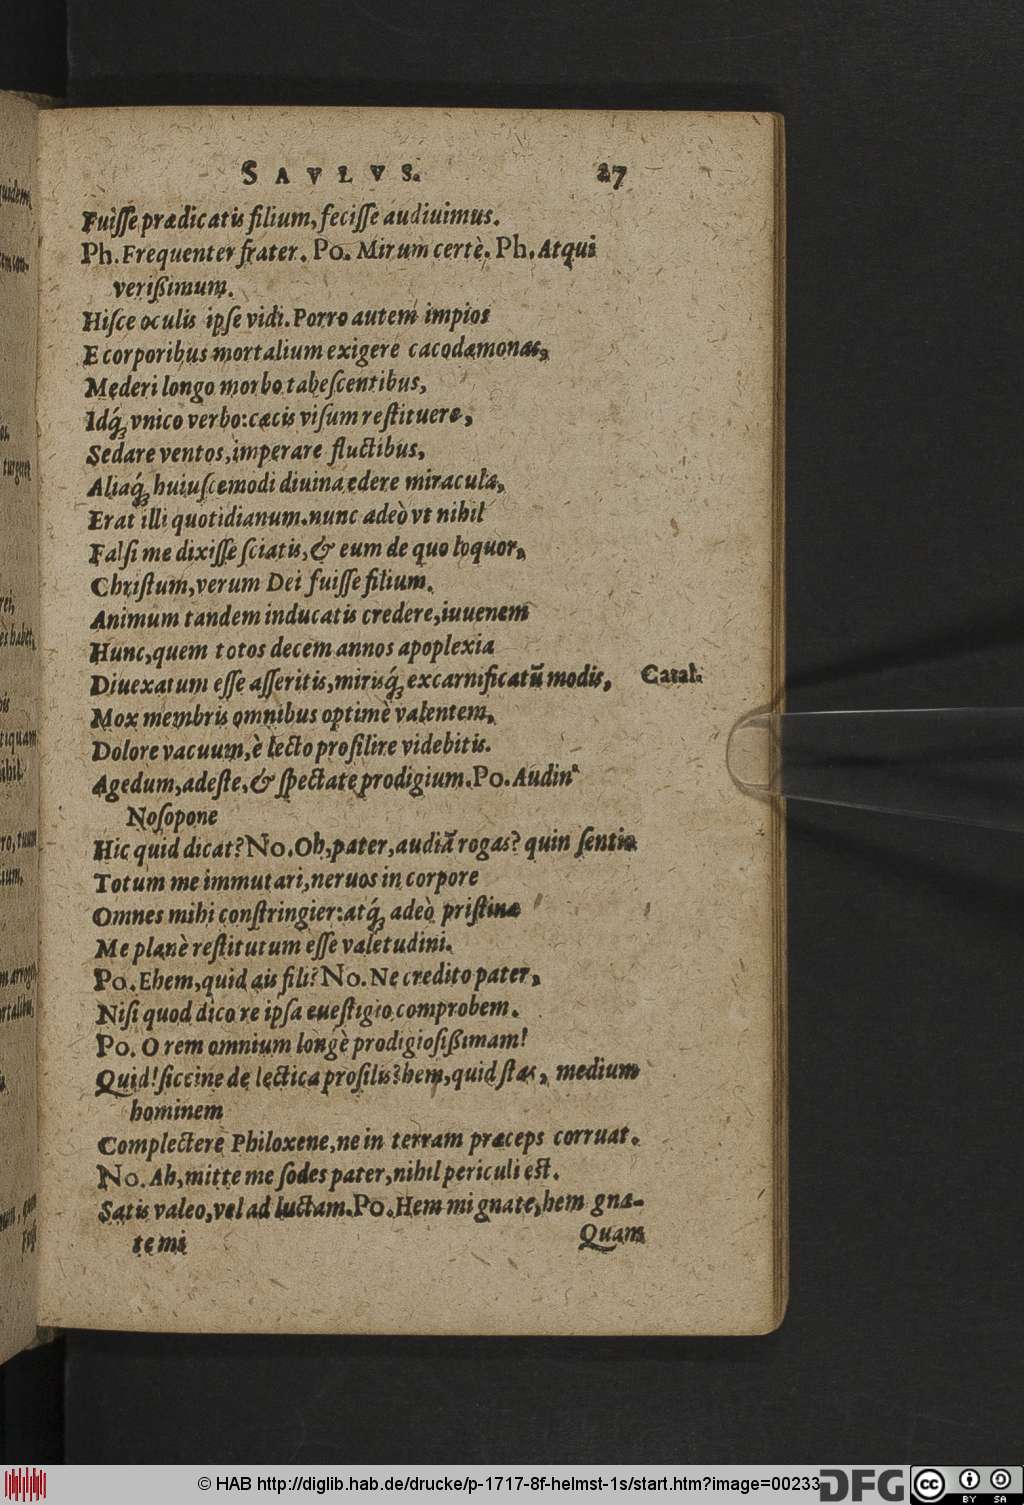 SAVLVS. 27
Fuiſſe prædicatis filium, feciſſe audiuimus.
Ph. Frequenter frater. Po. Mirum certè. Ph. Atqui
verißimum.
Hiſce oculis ipſe vidi. Porro autem impios
E corporibus mortalium exigere cacodæmonas,
Mederi longo morbo tabeſcentibus,
Idq́; vnico verbo: cæcis viſum reſtituere,
Sedare ventos, imperare fluctibus,
Aliaq́; huiuſcemodi diuina edere miracula,
Erat illi quotidianum. nunc adeò vt nihil
Falſi me dixiſſe ſciatis, & eum de quo loquor,
Chriſtum, verum Dei fuiſſe filium.
Animum tandem inducatis credere, iuuenem
Hunc, quem totos decem annos apoplexia
Diuexatum eſſe aſſeritis, mirisq́; excarnificatũ modis,
Catal.
Mox membris omnibus optimè valentem,
Dolore vacuum, è lecto proſilire videbitis.
Agedum, adeſte, & ſpectate prodigium. Po. Audin'
Noſopone
Hic quid dicat? No. Oh, pater, audiã rogas? quin ſentio
Totum me immutari, neruos in corpore
Omnes mihi conſtringier: atq́; adeò priſtinæ
Me planè reſtitutum eſſe valetudini.
Po. Ehem, quid ais fili? No. Ne credito pater,
Niſi quod dico re ipſa eueſtigio comprobem.
Po. O rem omnium longè prodigioſißimam!
Quid! ſiccine de lectica proſilis? hem, quid ſtas, medium
hominem
Complectere Philoxene, ne in terram præceps corruat.
No. Ah, mitte me ſodes pater, nihil periculi eſt.
Satis valeo, vel ad luctam. Po. Hem mi gnate, hem gna-
te mi
Quam
© HAB http://diglib.hab.de/drucke/p-1717-8f-helmst-1s/start.htm?image=00233
DFG
cc BY SA